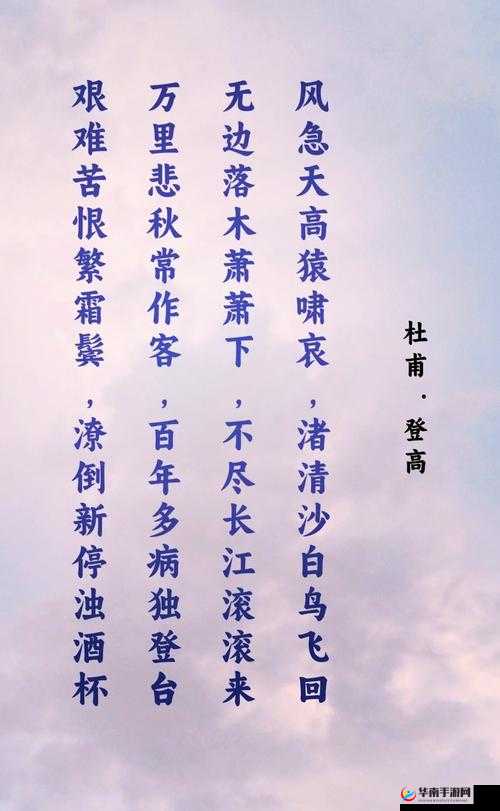 杜甫·登高
风急天高猿啸哀，渚清沙白鸟飞回
无边落木萧萧下，不尽长江滚滚来
万里悲秋常作客，百年多病独登台
艰难苦恨繁霜鬓，潦倒新停浊酒杯
华南手游网